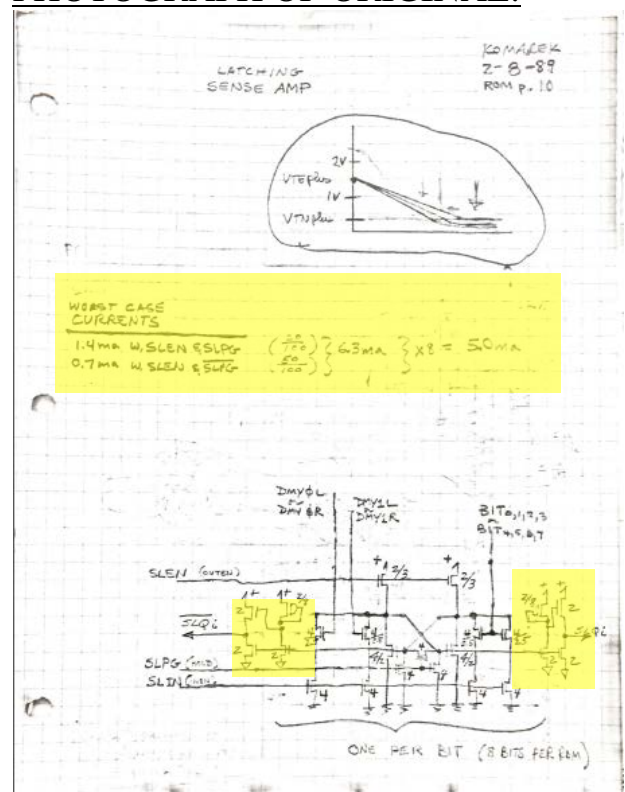 PHOTOGRAPH OF ORIGINAL:
KOMAREK
2-8-89
ROM p. 10
LATCHING
SENSE AMP
2V
VTEplus
1V
VTNplus
WORST CASE
CURRENTS
1.4ma W, SLEN & SLPG
0.7ma W, SLEN & SLPG
x8 = 50ma
DMYΦL
DMYΦR
DMY1L
DMY1R
BIT0,1,2,3
BIT4,5,6,7
SLEN (OUTEN)
2/3
2/3
SLQi
SLQi
SLPG (HOLD)
SLIN
ONE PER BIT (8 BITS PER ROM)